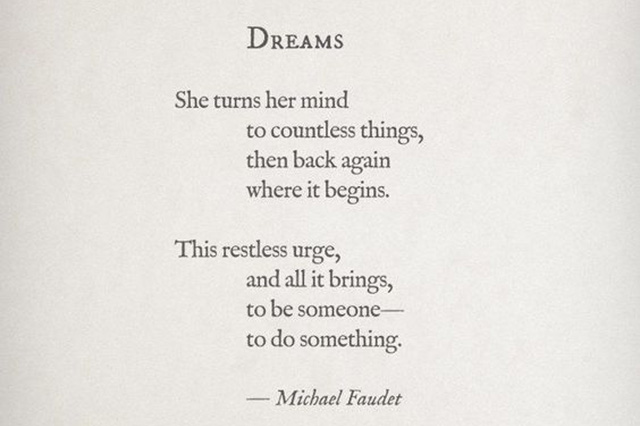 Dreams
She turns her mind
to countless things,
then back again
where it begins.
This restless urge,
and all it brings,
to be someone—
to do something.
— Michael Faudet